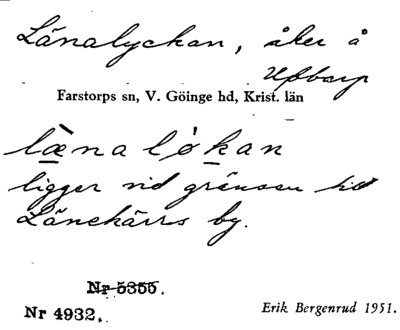 Länalyckan, åker å
Ubbarp
Farstorps sn, V. Göinge hd, Krist. län
læ̀na lø̀kan
ligger vid gränsen till
Länekärrs by.
Nr 5355.
Nr 4932.
Erik Bergenrud 1951.